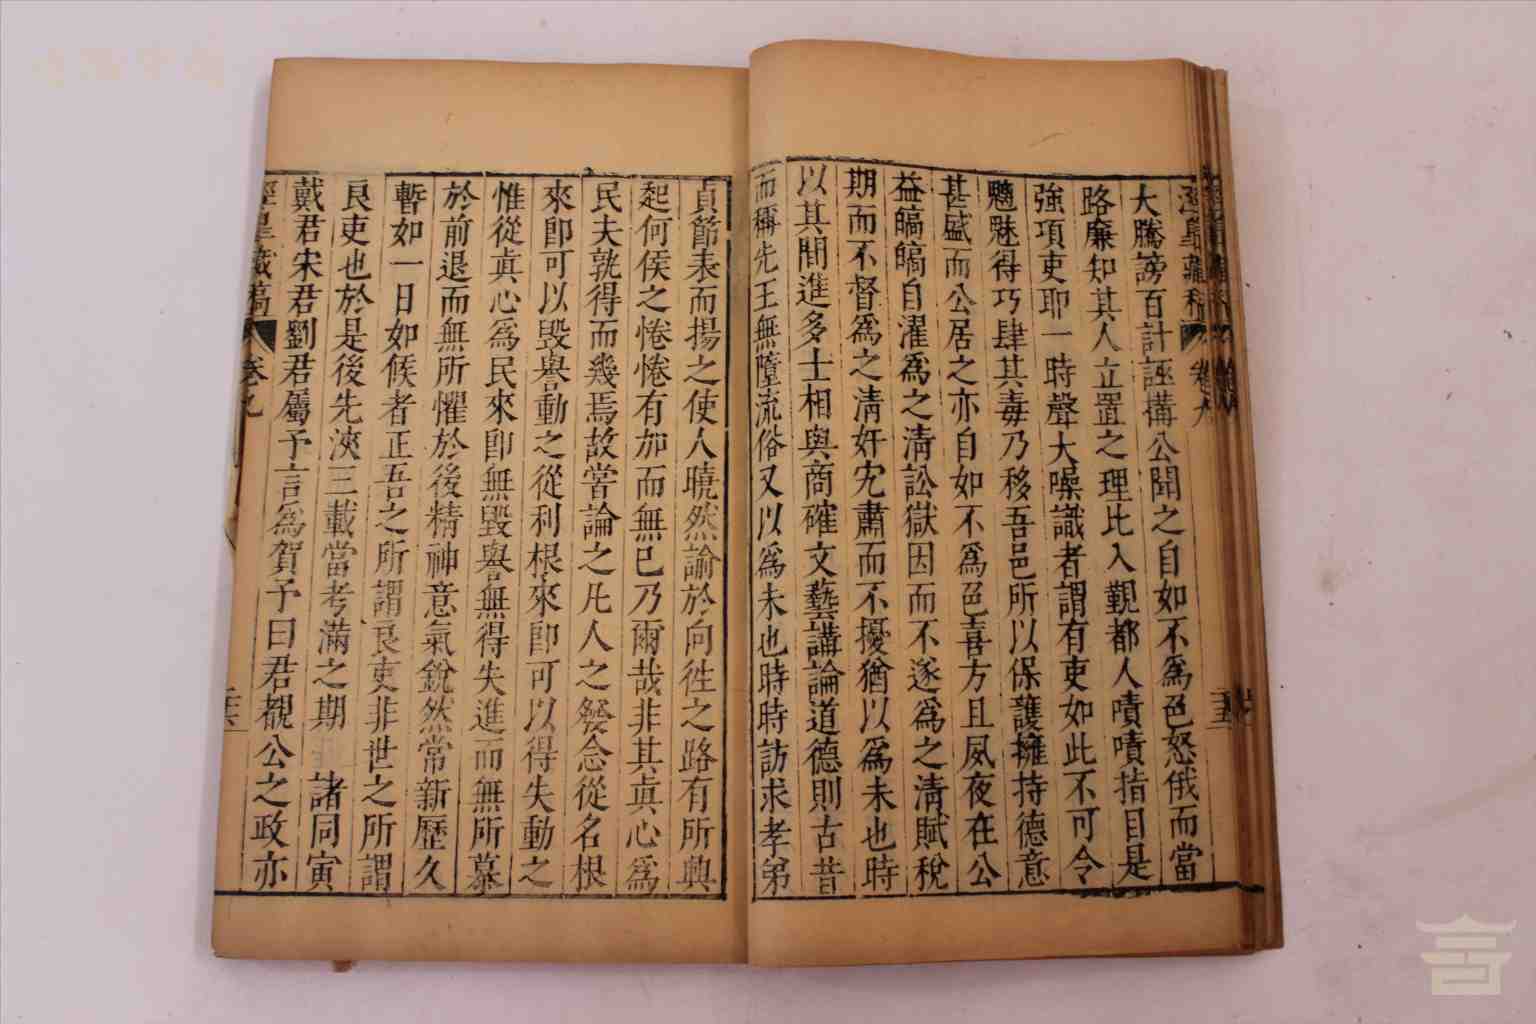 涇皐藏稿 卷九
大騰謗百計誣搆公聞之自如不爲色怒俄而當
路廉知其人立置之理比入覲都人嘖嘖指目是
強項吏耶一時聲大噪識者謂有吏如此不可令
魑魅得巧肆其毒乃移吾邑所以保護擁持德意
甚盛而公居之亦自如不爲色喜方且夙夜在公
益皜皜自濯爲之清訟獄因而不遂爲之清賦稅
期而不督爲之清奸宄肅而不擾猶以爲未也時
以其間進多士相與商確文藝講論道德則古昔
而稱先王無墮流俗又以爲未也時時訪求孝弟
貞節表而揚之使人曉然諭於向徃之路有所興
起何侯之惓惓有加而無已乃爾哉非其眞心爲
民夫孰得而幾焉故嘗論之凡人之發念從名根
來卽可以毀譽動之從利根來卽可以得失動之
惟從眞心爲民來卽無毀譽無得失進而無所慕
於前退而無所懼於後精神意氣銳然常新歷久
暫如一日如候者正吾之所謂良吏非世之所謂
良吏也於是後先浹三載當考滿之期 諸同寅
戴君宋君劉君屬予言爲賀予曰君覩公之政亦
涇皐藏稿 卷九